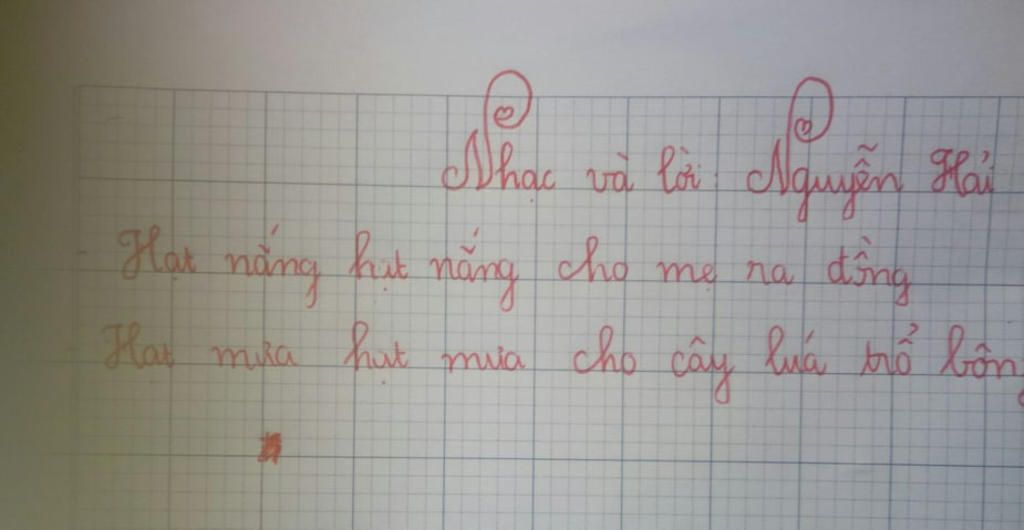 Nhạc và lời: Nguyễn Hải
Hạt nắng hạt nắng cho mẹ ra đồng
Hạt mưa hạt mưa cho cây luá trổ bông